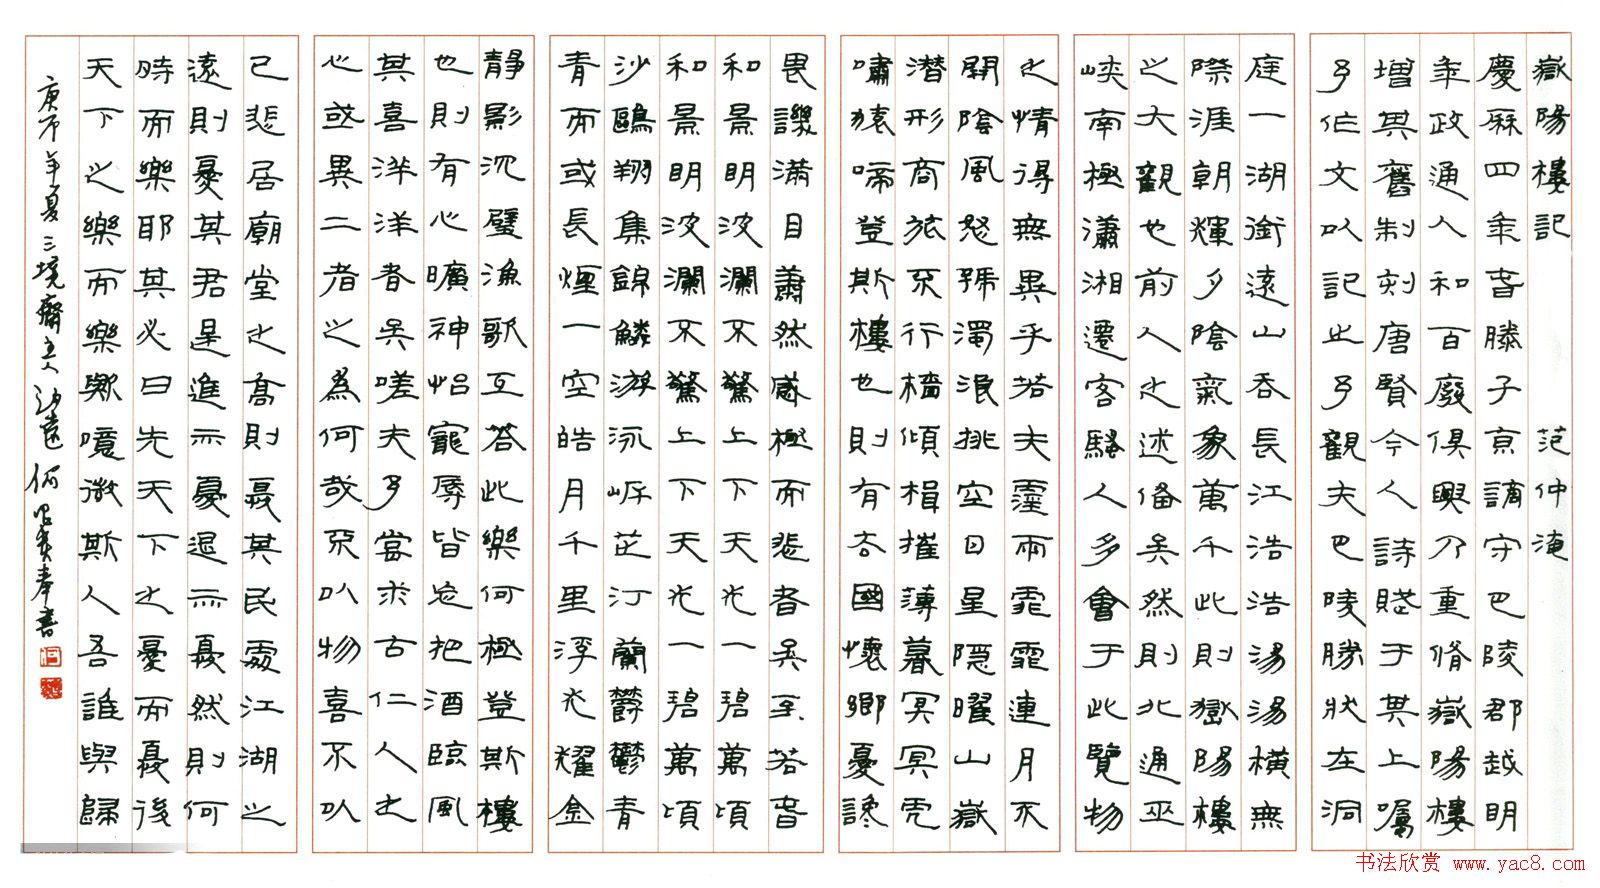 嶽陽樓記 范仲淹
慶厤四年春滕子京謫守巴陵郡越明
年政通人和百廢俱興乃重脩嶽陽樓
增其舊制刻唐賢今人詩賦于其上囑
予作文以記之予觀夫巴陵勝狀在洞
庭一湖銜遠山吞長江浩浩湯湯橫無
際涯朝輝夕陰氣象萬千此則嶽陽樓
之大觀也前人之述俻矣然則北通巫
峽南極瀟湘遷客騷人多會于此覽物
之情得無異乎若夫霪雨霏霏連月不
開陰風怒號濁浪排空日星隱曜山嶽
潛形商旅不行檣傾楫摧薄暮冥冥虎
嘯猿啼登斯樓也則有去國懷鄉憂讒
畏譏滿目蕭然感極而悲者矣至若春
和景明波瀾不驚上下天光一碧萬頃
和景明波瀾不驚上下天光一碧萬頃
沙鷗翔集錦鱗游泳岸芷汀蘭鬱鬱青
青而或長煙一空皓月千里浮光耀金
靜影沉璧漁歌互答此樂何極登斯樓
也則有心曠神怡寵辱皆忘把酒臨風
其喜洋洋者矣嗟夫予嘗求古仁人之
心或異二者之為何哉不以物喜不以
己悲居廟堂之高則憂其民處江湖之
遠則憂其君是進亦憂退亦憂然則何
時而樂耶其必曰先天下之憂而憂後
天下之樂而樂歟噫微斯人吾誰與歸
庚年夏三境齋主人何奉書
书法欣赏 www.yac8.com